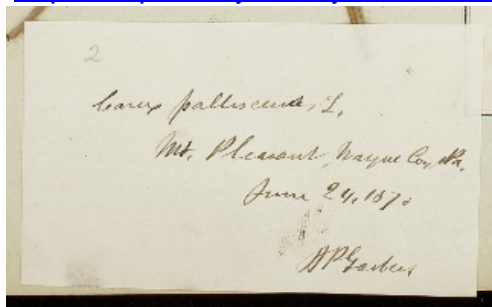 2
Carex pallescens, L.
Mt. Pleasant, Wayne Co., Pa.
June 24, 187
A P Garber